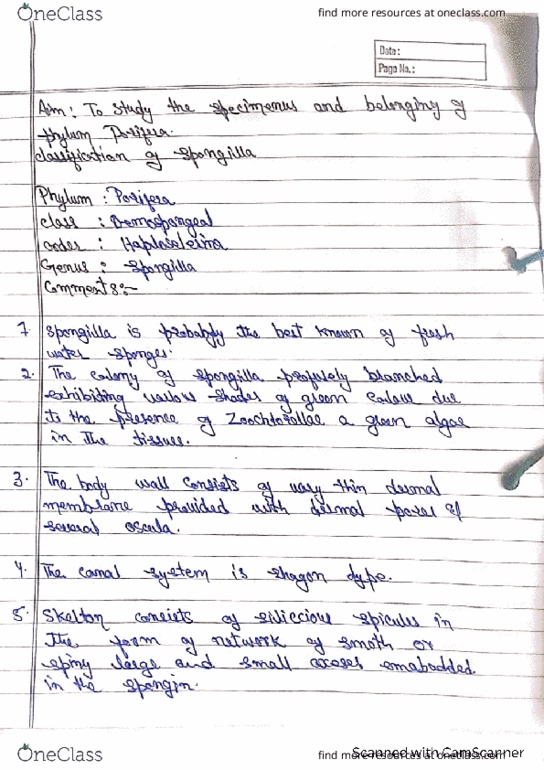 OneClass
find more resources at oneclass.com
Date:
Page No.:
Aim: To study the specimenus and belonging of
phylum Porifera.
classification of spongilla
Phylum : Porifera
class : Demospongeal
order : Haplosclerina
Genus : Spongilla
Comments:-
1. Spongilla is probably the best known of fresh
water sponges.
2. The colony of spongilla profusely branched
exhibiting various shades of green colour due
to the presence of Zoochlorellae a green algae
in the tissues.
3. The body wall consists of vary thin dermal
membrane provided with dermal pores &
several oscula.
4. The canal system is rhagon type.
5. Skelton consists of siliccious spicules in
the form of network of smoth or
spiny large and small oxeses emabodded
in the spongin.
OneClass
find more resources at oneclass.com
Scanned with CamScanner